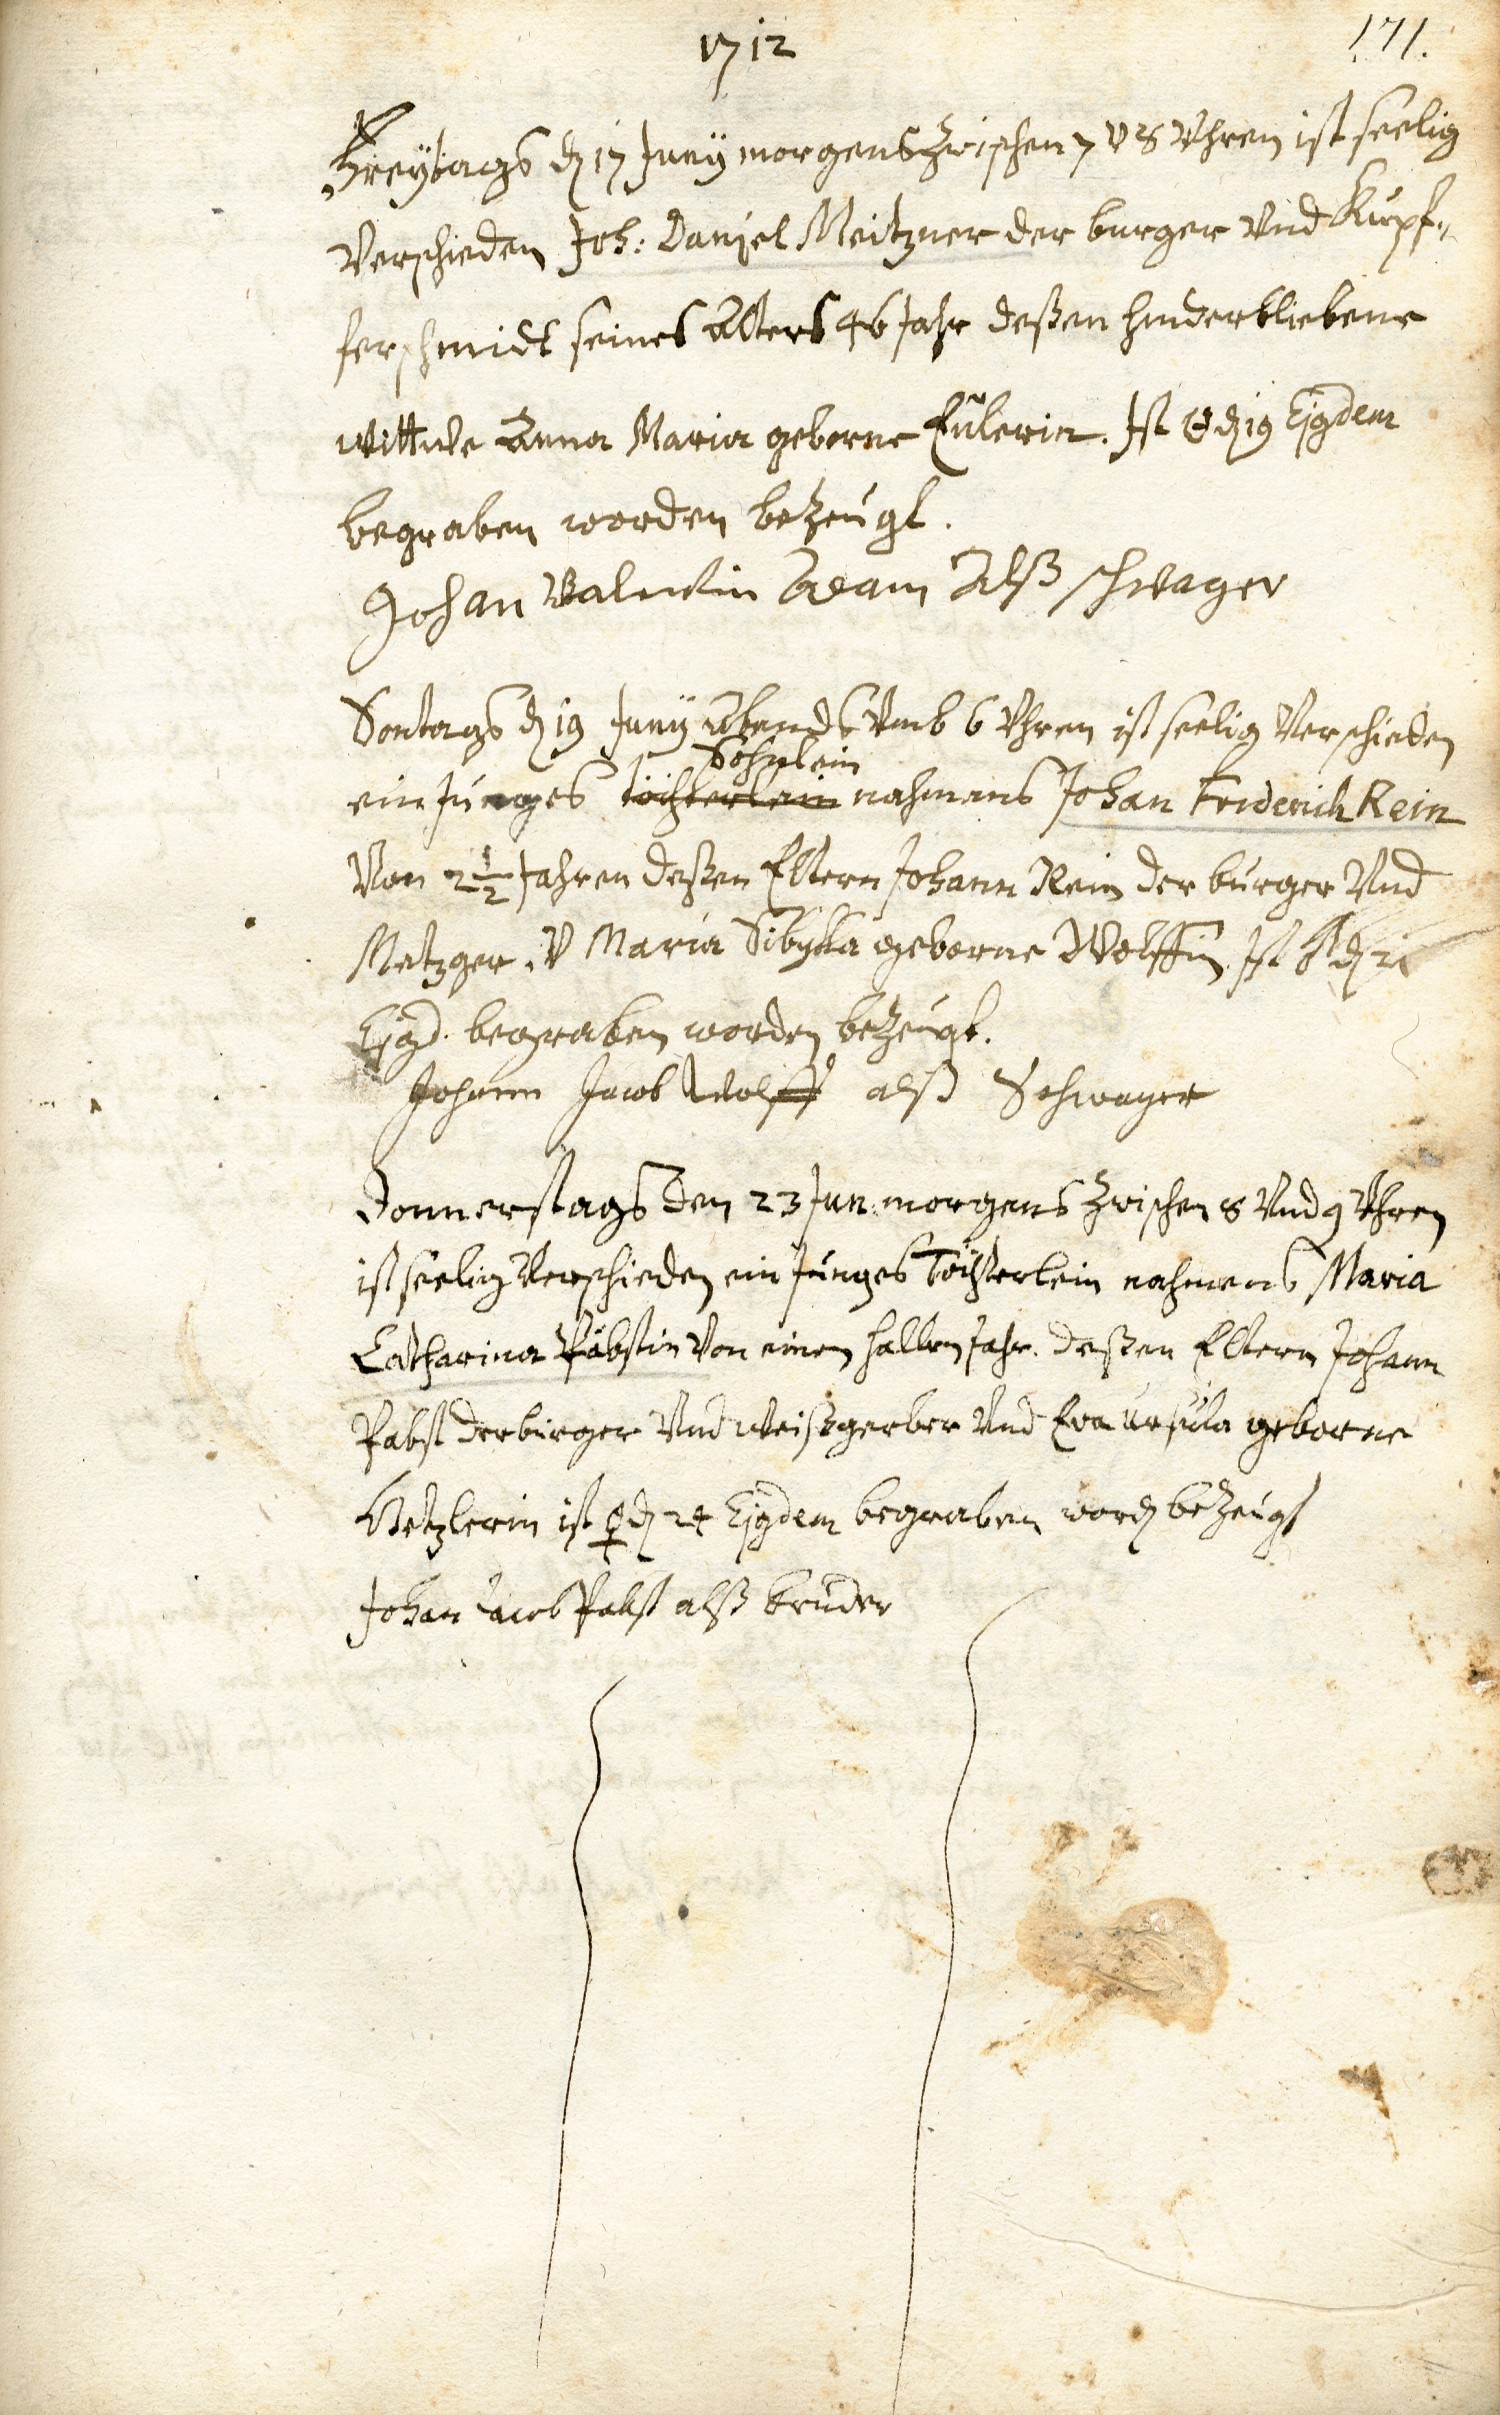 1712
171.
Freytags d 17 Junÿ morgens zwischen 7 v 8 Vhren ist seelig
Verschieden Joh: Daniel Meitzner der burger Vnd Kupf„
ferschmidt seines Alters 46 Jahr deßen hinderbliebene
wittwe Anna Maria geborne Eülerin. Ist ☉ d 19 Ejgdem
begraben worden bezeugt.
Johan Valentin Adam Alß schwager
Sontags d 19 Junÿ Abends Vmb 6 Vhren ist seelig Verschieden
Söhnlein
ein Junges töchterlein nahmens Johan Friderich Rein
Von 2 1/2 Jahren deßen Eltern Johann Rein der burger Vnd
Metzger, V Maria Sibylla geborne Wolffin, Ist ♂ d 21
Ejgd. begraben worden bezeugt.
Johann Jacob Wolff alß Schwager
Donnerstags den 23 Jun: morgens zwischen 8 Vnd 9 Vhren
ist seelig Verschieden ein Junges Töchterlein nahmens Maria
Catharina Päbstin Von einem halben Jahr. deßen Eltern Johann
Pabst der burger Vnd weißgerber Vnd Eva Ursula geborne
Hetzlerin ist ♀ d 24 Ejgdem begraben word bezeugt
Johan Jacob Pabst alß bruder